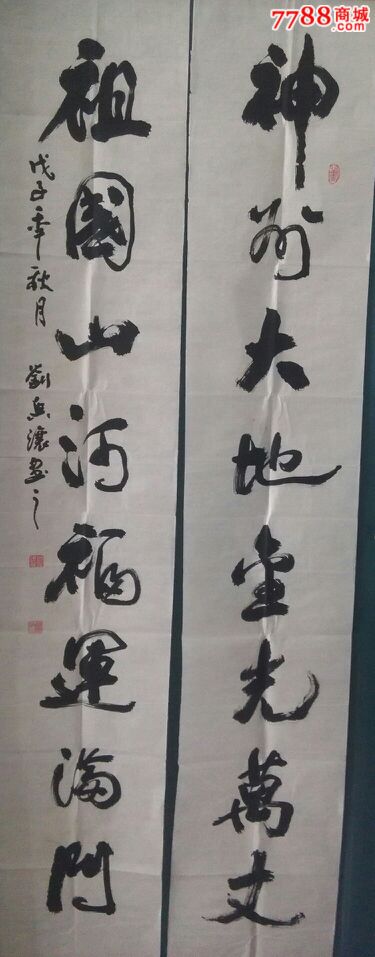 7788商城
.com
神州大地金光萬丈
祖國山河福運滿門
戊子年秋月
劉
書之